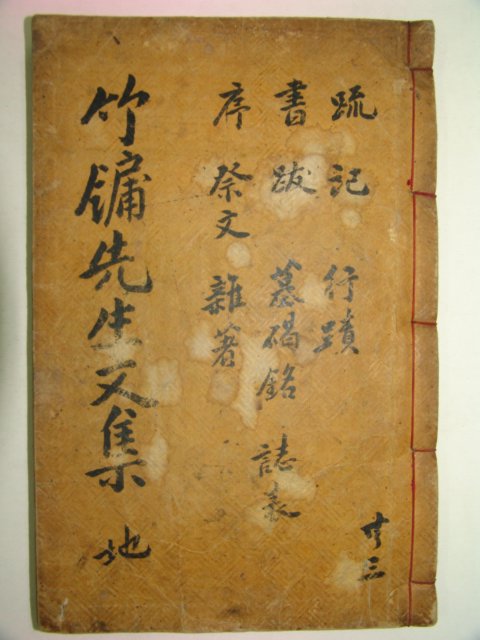 共三
疏 記 行蹟
書 跋 墓碣銘 誌表
序 祭文 雜著
竹牖先生文集 地